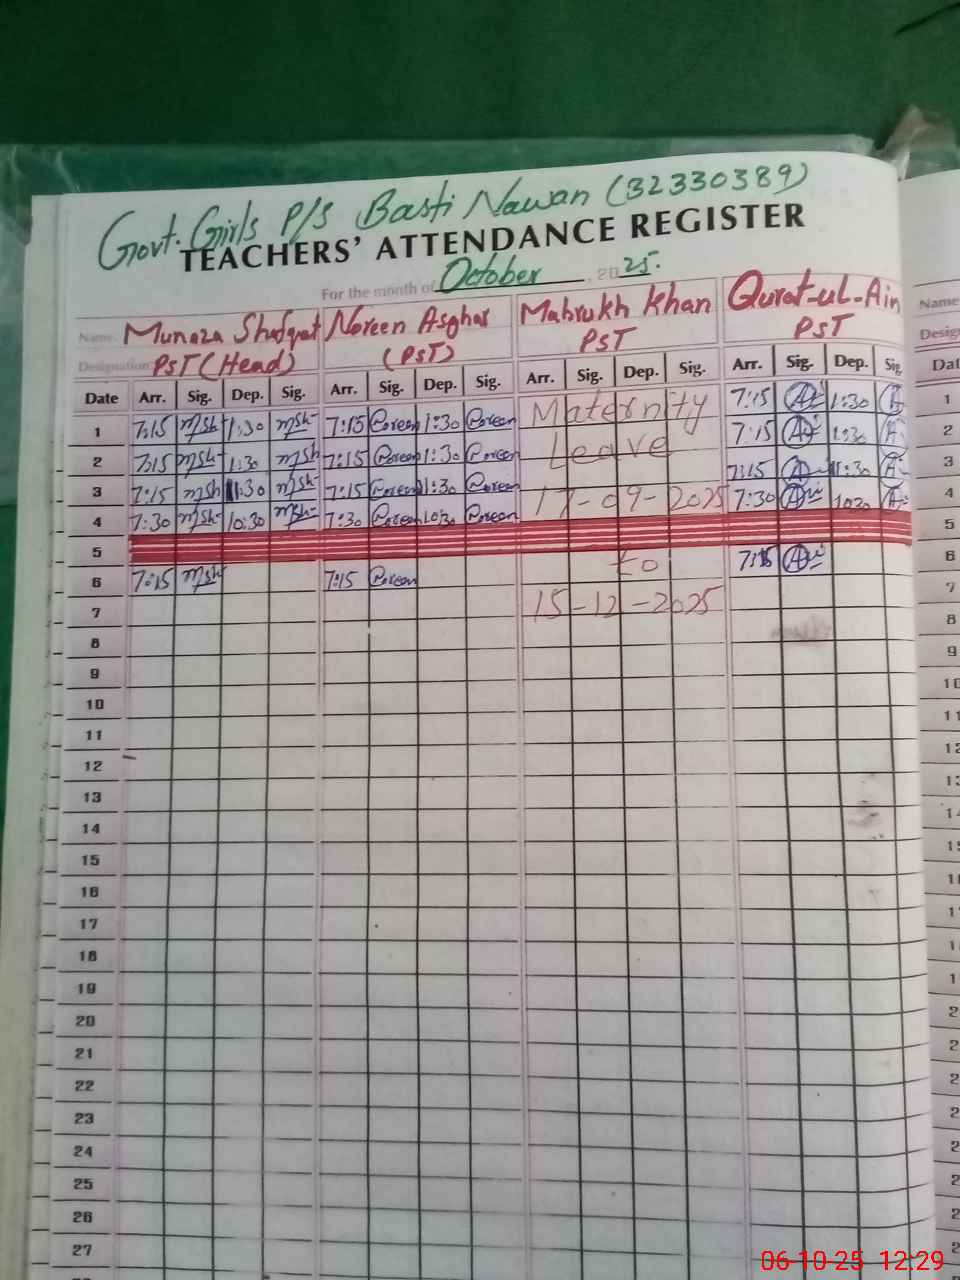 Govt. Girls P/S Basti Nawan (32330389)
TEACHERS' ATTENDANCE REGISTER
For the month of October, 2025.
Name Munaza Shafqat Noreen Asghar Mahrukh Khan Qurat-ul-Ain Name
Designation PST (Head) (PST) PST PST Desig
Date Arr. Sig. Dep. Sig. Arr. Sig. Dep. Sig. Arr. Sig. Dep. Sig. Arr. Sig. Dep. Sig Dat
1 7:15 msh 1:30 msh 7:15 Noreen 1:30 Noreen Maternity 7:15 1:30 1
2 7:15 msh 1:30 msh 7:15 Noreen 1:30 Noreen Leave 7:15 1:30 2
3 7:15 msh 1:30 msh 7:15 Noreen 1:30 Noreen 17-09-2025 7:15 1:30 3
4 7:30 msh 10:30 msh 7:30 Noreen 10:30 Noreen 7:30 1030 4
5 5
6 7:15 msh 7:15 Noreen to 7:15 6
7 15-12-2025 7
8 8
9 9
10 10
11 11
12 12
13
14
15
16
17
18
19
20
21
22
23
24
25
26
27
06-10-25 12:29